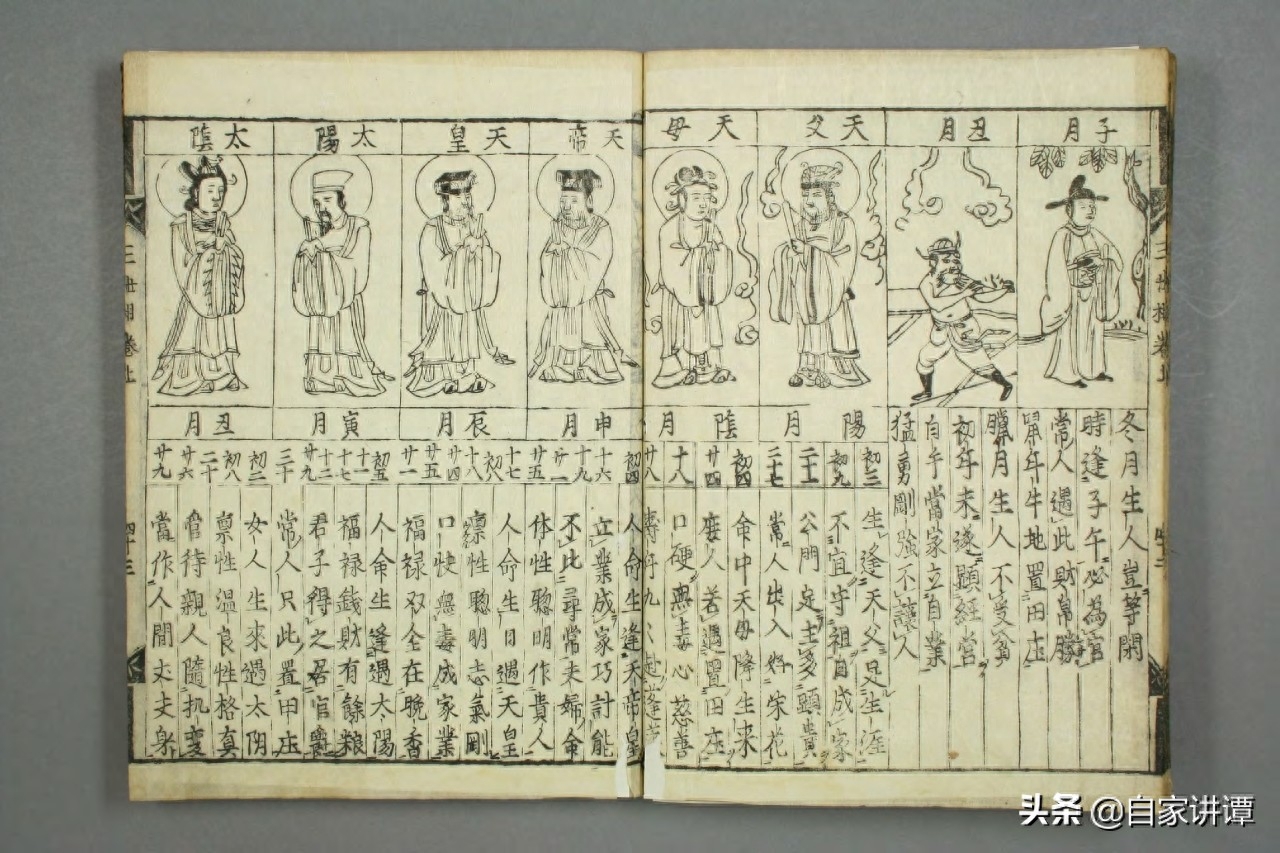 子月
冬月生人豈等閑
時逢子午必為官
常人遇此財帛勝
鼠年牛地置田庄
丑月
臘月生人不受貧
初年未遂顕經营
自手當家立自業
猛勇剛強不讓人
天父
陽月
初三
初九
二十七
生逢天父是生涯
不宜守祖自成家
公門定主多顕貴
常人出入好栄花
天母
陰月
初四
廿四
十八
廿八
命中天母降生来
度人若遇置田庄
口硬無毒心慈善
天帝
申月
初四
十六
十九
廿一
廿五
人命生逢天帝皇
立業成家巧計能
不比尋常夫婦命
体性聦明作貴人
天皇
辰月
十七
初八
十八
廿四
廿五
廿一
人命生日遇天皇
禀性聦明志氣剛
口快無毒成家業
福禄双全在晩香
太陽
寅月
初五
十一
十七
十二
廿九
三十
人命生逢遇太陽
福禄錢財有餘粮
君子得之居官爵
常人只此置田庄
太陰
丑月
初三
初八
二十
廿六
廿九
女人生來遇太阴
禀性温良性格真
管待親人隨机变
當作人間丈夫身
三世相卷上
四十三
头条 @自家讲谭